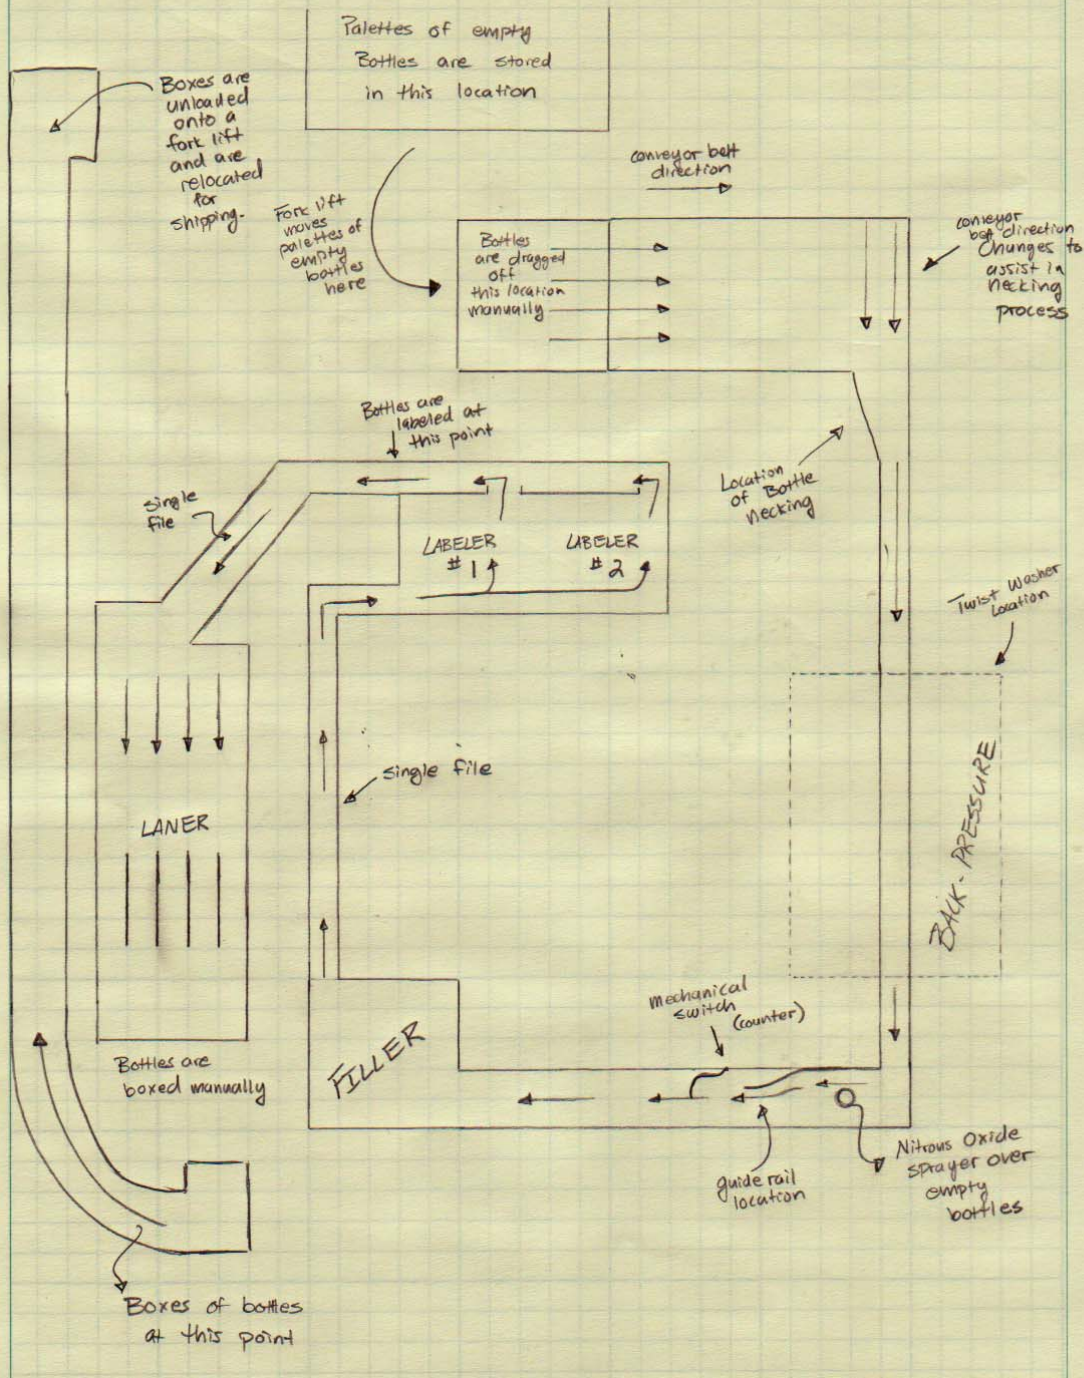 Palettes of empty
Bottles are stored
in this location
Boxes are
unloaded
onto a
fork lift
and are
relocated
for
shipping.
conveyor belt
direction
Fork lift
moves
palettes of
empty
bottles
here
Bottles
are dragged
off
this location
manually
conveyor
belt direction
Changes to
assist in
necking
process
Bottles are
labeled at
this point
single
file
Location
of Bottle
necking
LABELER
#1
LABELER
#2
Twist Washer
Location
single file
LANER
BACK-PRESSURE
mechanical
switch
(counter)
FILLER
Bottles are
boxed manually
guide rail
location
Nitrous Oxide
sprayer over
empty
bottles
Boxes of bottles
at this point